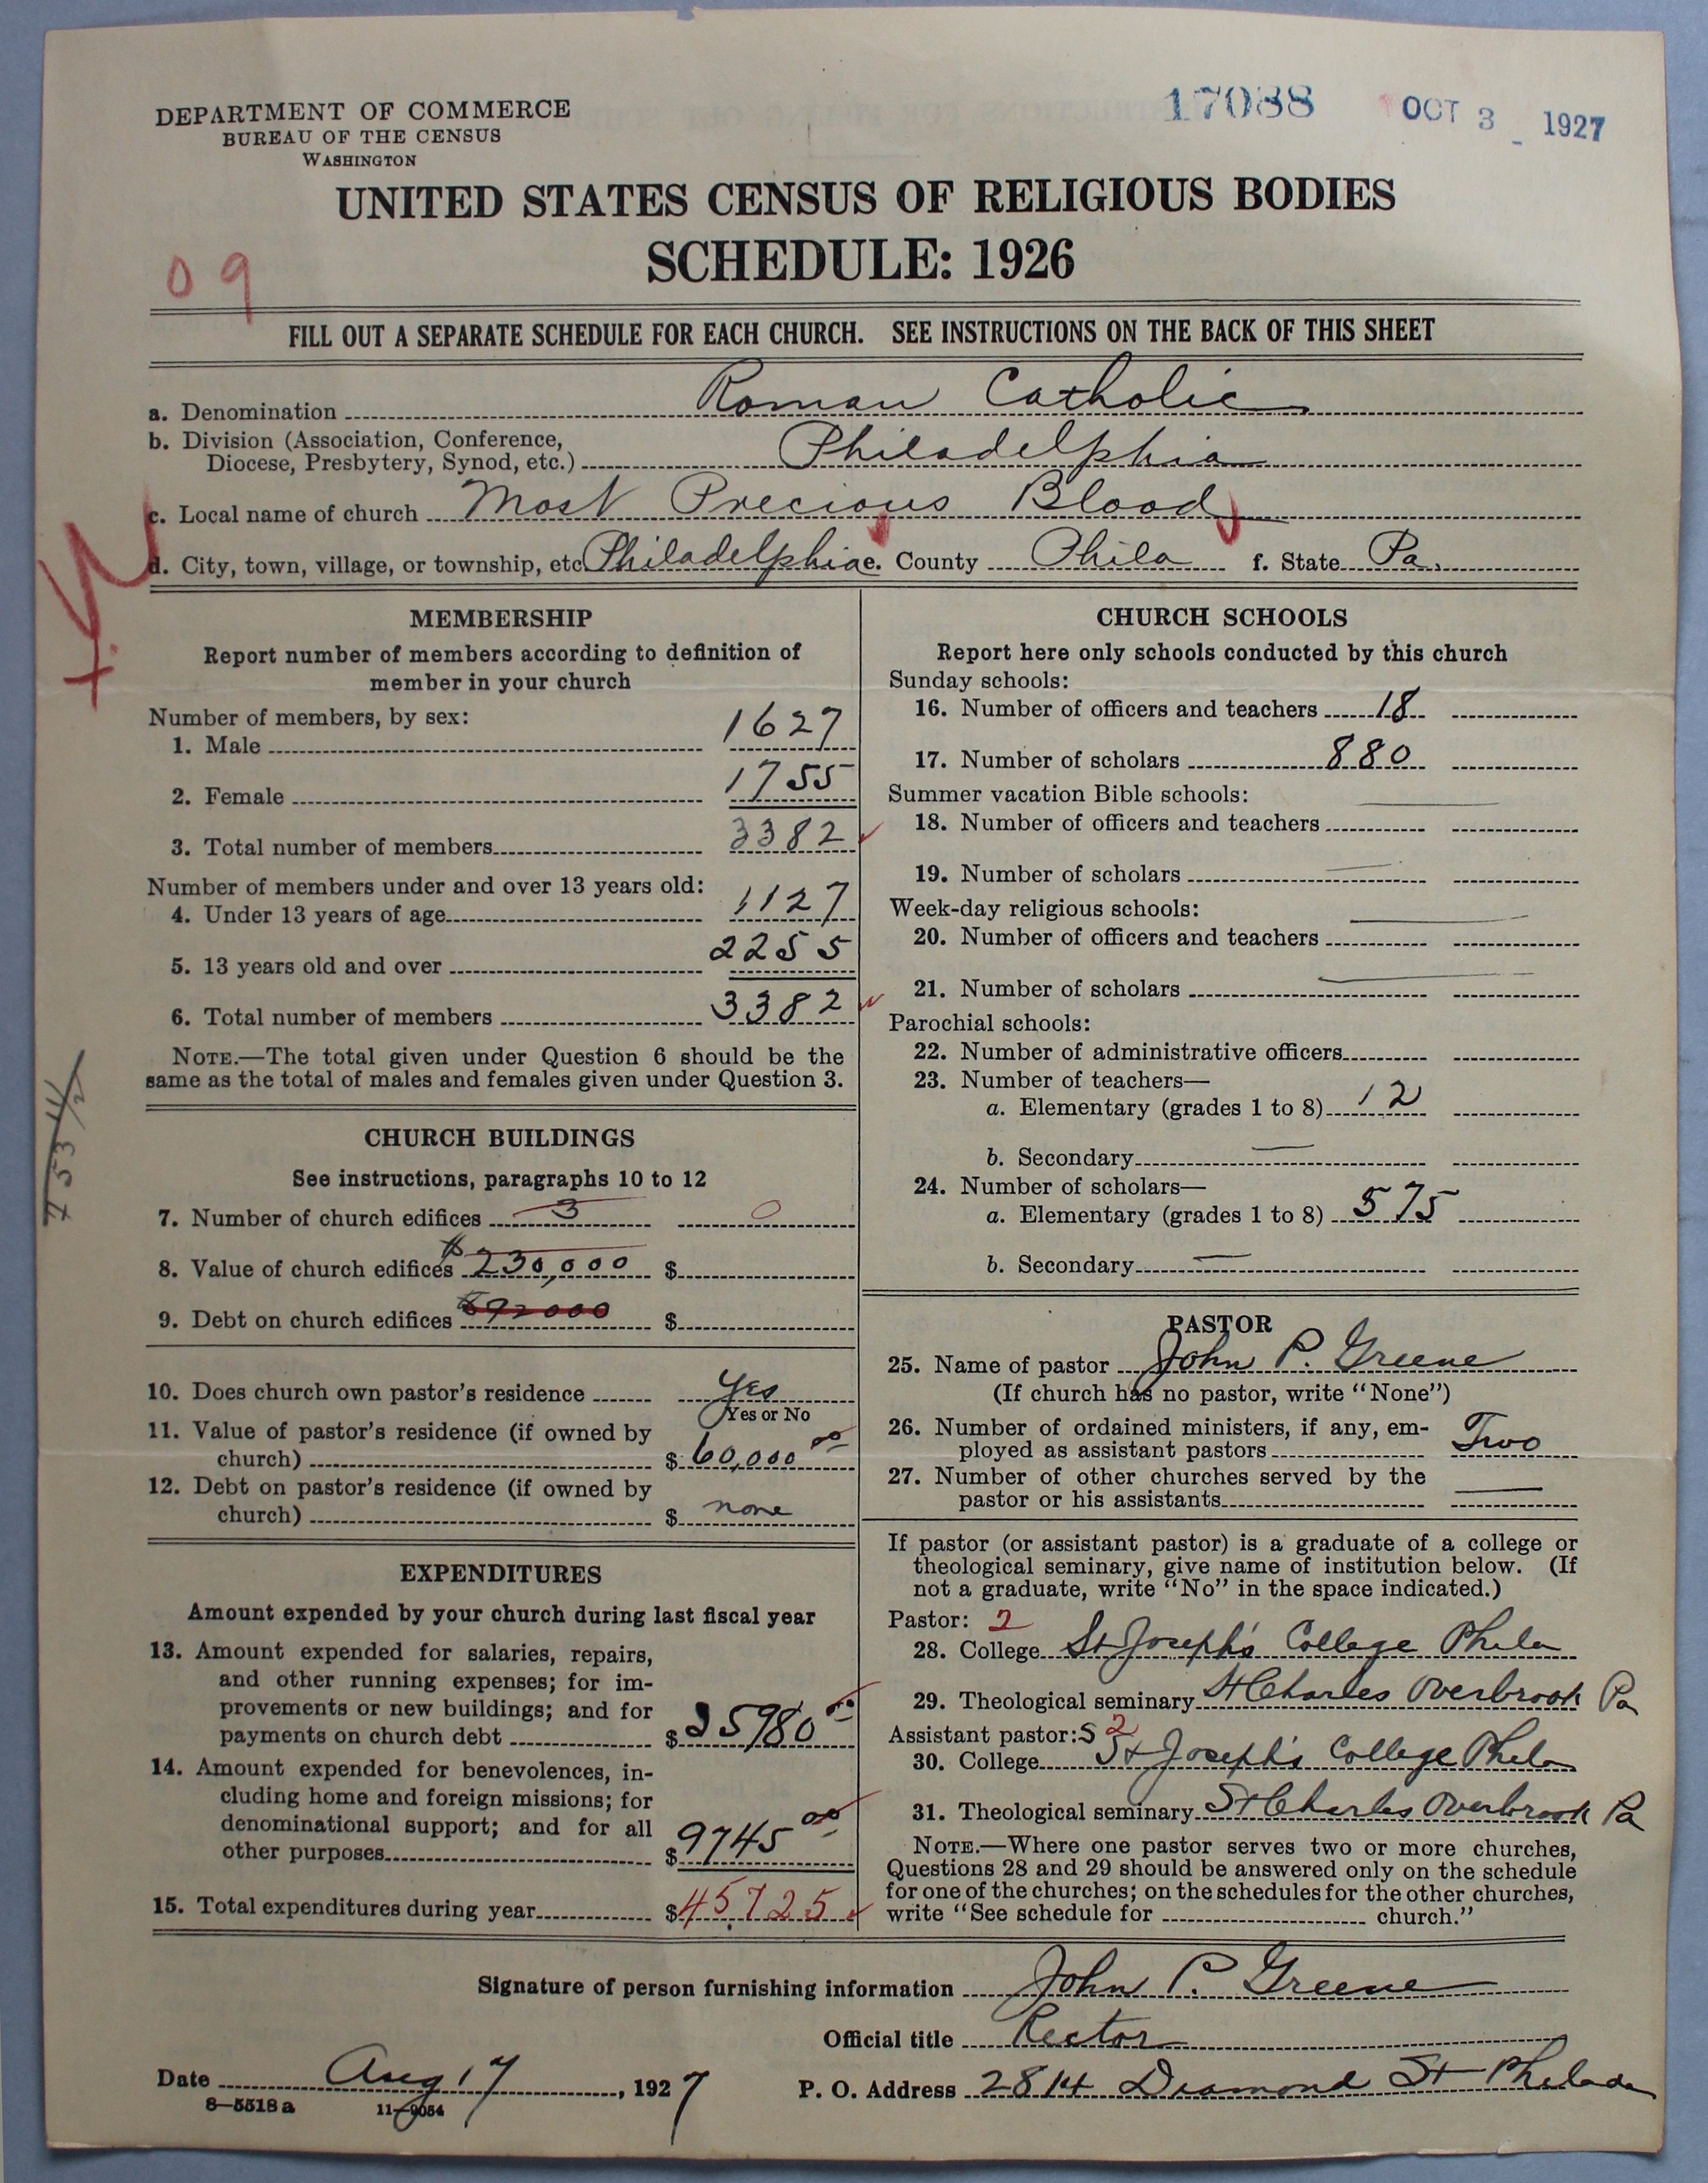 17088 OCT 3 1927
DEPARTMENT OF COMMERCE
BUREAU OF THE CENSUS
WASHINGTON
UNITED STATES CENSUS OF RELIGIOUS BODIES
SCHEDULE: 1926
09
FILL OUT A SEPARATE SCHEDULE FOR EACH CHURCH. SEE INSTRUCTIONS ON THE BACK OF THIS SHEET
a. Denomination Roman Catholic
b. Division (Association, Conference,
Diocese, Presbytery, Synod, etc.) Philadelphia
c. Local name of church Most Precious Blood
d. City, town, village, or township, etc. Philadelphia e. County Phila f. State Pa.
MEMBERSHIP
Report number of members according to definition of
member in your church
Number of members, by sex:
1. Male 1627
2. Female 1755
3. Total number of members 3382
Number of members under and over 13 years old:
4. Under 13 years of age 1127
5. 13 years old and over 2255
6. Total number of members 3382
NOTE.—The total given under Question 6 should be the
same as the total of males and females given under Question 3.
CHURCH BUILDINGS
See instructions, paragraphs 10 to 12
7. Number of church edifices 3 0
8. Value of church edifices $230,000 $
9. Debt on church edifices $92000 $
10. Does church own pastor's residence Yes
Yes or No
11. Value of pastor's residence (if owned by
church) $60,000 00
12. Debt on pastor's residence (if owned by
church) $ none
EXPENDITURES
Amount expended by your church during last fiscal year
13. Amount expended for salaries, repairs,
and other running expenses; for im-
provements or new buildings; and for
payments on church debt $ 35980 00
14. Amount expended for benevolences, in-
cluding home and foreign missions; for
denominational support; and for all
other purposes $9745 00
15. Total expenditures during year $45725
CHURCH SCHOOLS
Report here only schools conducted by this church
Sunday schools:
16. Number of officers and teachers 18
17. Number of scholars 880
Summer vacation Bible schools:
18. Number of officers and teachers
19. Number of scholars
Week-day religious schools:
20. Number of officers and teachers
21. Number of scholars
Parochial schools:
22. Number of administrative officers
23. Number of teachers—
a. Elementary (grades 1 to 8) 12
b. Secondary
24. Number of scholars—
a. Elementary (grades 1 to 8) 575
b. Secondary
PASTOR
25. Name of pastor John P. Greene
(If church has no pastor, write "None")
26. Number of ordained ministers, if any, em-
ployed as assistant pastors Two
27. Number of other churches served by the
pastor or his assistants
If pastor (or assistant pastor) is a graduate of a college or
theological seminary, give name of institution below. (If
not a graduate, write "No" in the space indicated.)
Pastor: 2
28. College St Joseph's College Phila
29. Theological seminary St Charles Overbrook Pa
Assistant pastor:s 2
30. College St Joseph's College Phila
31. Theological seminary St Charles Overbrook Pa
NOTE.—Where one pastor serves two or more churches,
Questions 28 and 29 should be answered only on the schedule
for one of the churches; on the schedules for the other churches,
write "See schedule for church."
Signature of person furnishing information John P. Greene
Official title Rector
Date Aug 17, 1927 P. O. Address 2814 Diamond St Philada
8—5518a 11—9054